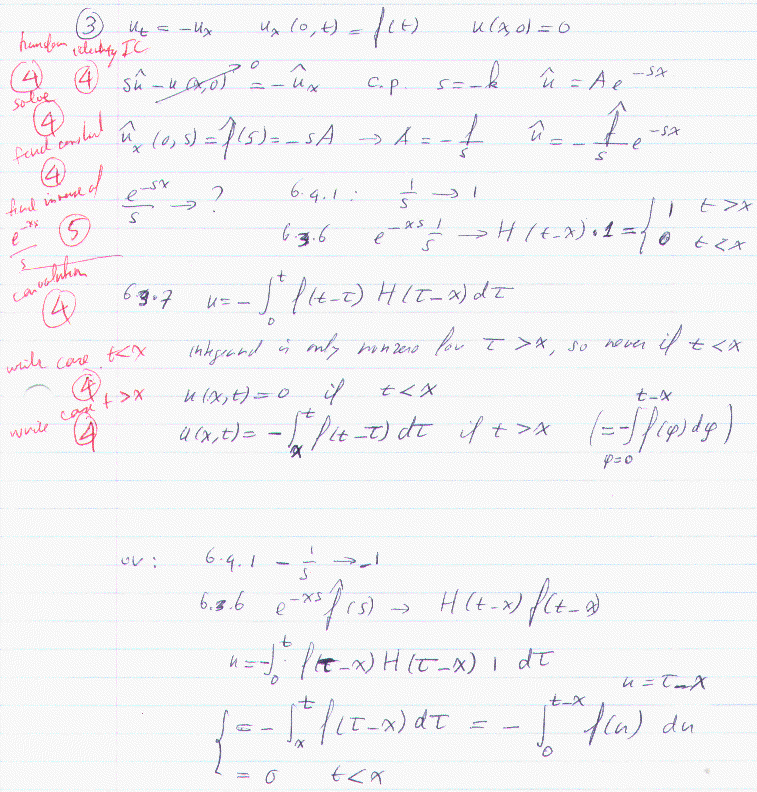 ③ u_t = -u_x   u_x(0,t) = f(t)   u(x,0) = 0
transform identity IC
④ ④ sû - u(x,0) 0 = -û_x   c.p. s = -k   û = A e^{-sx}
solve
④ û_x(0,s) = f̂(s) = -sA → A = -f̂/s   û = -f̂/s e^{-sx}
find constant
④
find inverse of e^{-sx}/s ⑤
e^{-sx}/s → ?   6.4.1 : 1/s → 1
6.3.6   e^{-xs} 1/s → H(t-x) · 1 = { 1 t>x
0 t<x
convolution
④ 6.3.7   u = -∫_0^t f(t-τ) H(τ-x) dτ
write case t<x   integrand is only nonzero for τ > x, so never if t < x
④ u(x,t) = 0 if t < x
write case t > x
④ u(x,t) = -∫_x^t f(t-τ) dτ if t > x   (= -∫_{φ=0}^{t-x} f(φ) dφ)
or : 6.4.1   -1/s → -1
6.3.6   e^{-xs} f̂(s) → H(t-x) f(t-x)
u = -∫_0^t f(τ-x) H(τ-x) 1 dτ
u = τ-x
{ = -∫_x^t f(τ-x) dτ = -∫_0^{t-x} f(u) du
= 0   t<x